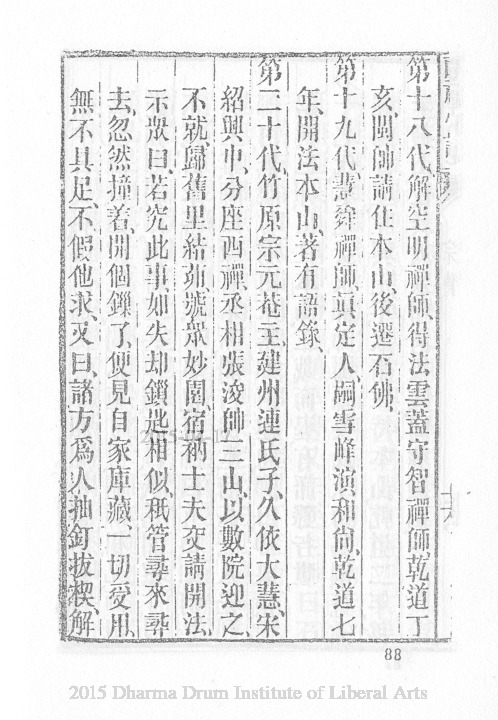 第十八代解空明禪師、得法雲蓋守智禪師、乾道丁
亥、閩帥請住本山、後遷石佛、
第十九代慧綽禪師、眞定人、嗣雪峰演和尙、乾道七
年、開法本山、著有語錄、
第二十代、竹原宗元菴主、建州連氏子、久依大慧、宋
紹興中、分座西禪、丞相張浚帥三山、以數院迎之、
不就、歸舊里結茆、號衆妙園、宿衲士夫交請開法、
示衆曰、若究此事、如失却鎖匙相似、秪管尋來尋
去、忽然撞着、開個鏁了、便見自家庫藏、一切受用、
無不具足、不假他求、又曰、諸方爲人抽釘拔楔、解
88
2015 Dharma Drum Institute of Liberal Arts